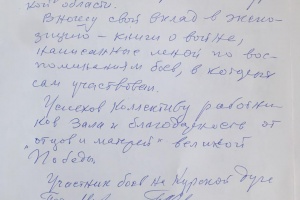 кой области.
Вношу свой вклад в экспо-
зицию – книги о войне,
написанные мной по вос-
поминаниям боёв, в которых
сам участвовал.
Успехов коллективу работни-
ков Зала и благодарность от
"отцов и матерей" великой
Победы.
Участник боёв на Курской дуге